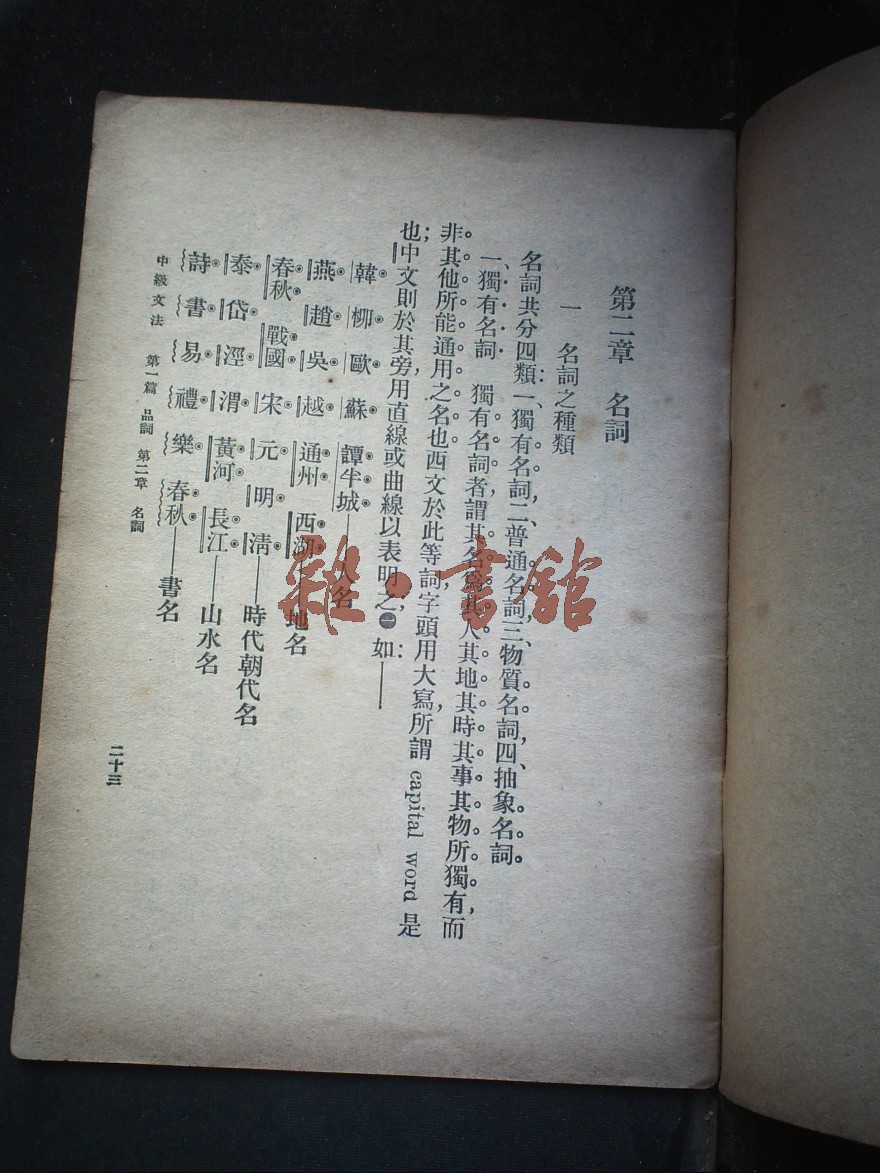 第二章　名詞
一　名詞之種類
名詞共分四類：一、獨有名詞，二、普通名詞，三、物質名詞，四、抽象名詞。
一、獨有名詞　獨有名詞者，謂其名爲其人其地其時其事其物所獨有，而
非其他所能通用之名也。西文於此等詞，字頭用大寫，所謂 capital word 是
也；中文則於其旁，用直線或曲線以表明之，㊀如：——
韓　柳　歐　蘇　譚半城——人名
燕　趙　吳　越　通州　西湖——地名
春秋　戰國　宋　元　明　清——時代朝代名
泰　岱　涇　渭　黃河　長江——山水名
詩　書　易　禮　樂　春秋——書名
中級文法　第一篇　品詞　第二章　名詞
二十三
雜·書館